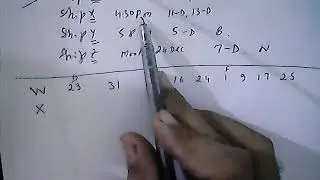 Ship X 4:30 Pm 11-D, 13-D
Ship Y 5 P 5-D B.
Ship Z 24 Dec 7-D N
D F
W 23 31 16 24 1 9 17 25
X